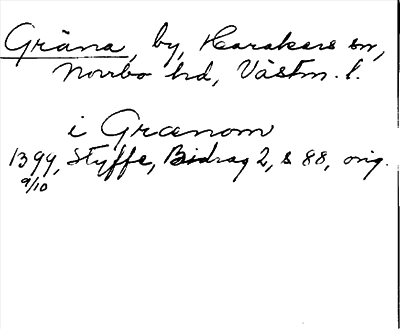 Gräna, by, Harakers sn,
Norrbo hd, Västm. l.
i Grænom
1399, Styffe, Bidrag 2, s 88, orig.
9/10